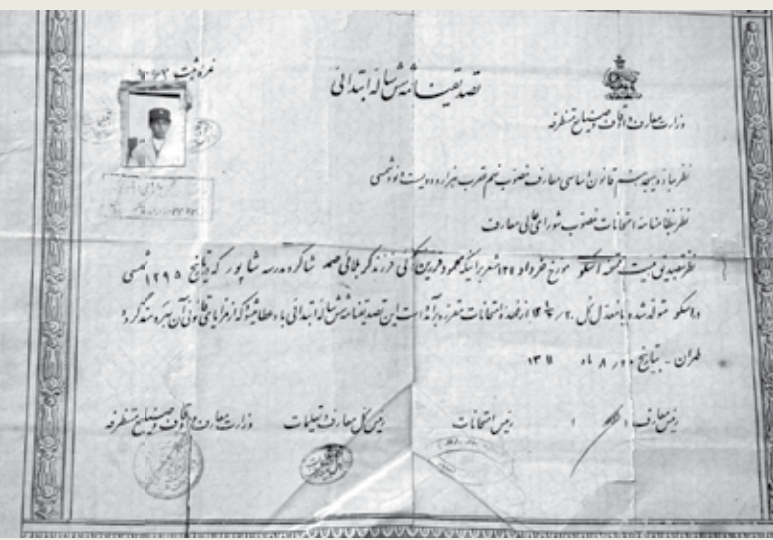 نمرهٔ ثبت
تصدیقنامهٔ شش سالهٔ ابتدائی
وزارت معارف و اوقاف و صنایع مستظرفه
نظر بمادهٔ هیجدهم قانون اساسی معارف مصوب نهم عقرب هزار و دویست و نود شمسی
نظر بنظامنامهٔ امتحانات مصوب شورای عالی معارف
نظر بتصدیق هیئت ممتحنهٔ اسکو مورخ خرداد مشعر بر اینکه محمود فرزند کربلائی صمد شاگرد مدرسه شاپور که در تاریخ ۱۲۹۵ شمسی
در اسکو متولد شده با معدل کل از عهدهٔ امتحانات مقرره برآمده است این تصدیقنامهٔ شش سالهٔ ابتدائی باو عطا میشود که از مزایای قانونی آن بهره مند گردد
طهران - بتاریخ ۸ ماه ۱۳۱۱
رئیس معارف رئیس امتحانات رئیس کل معارف و تعلیمات وزارت معارف و اوقاف و صنایع مستظرفه